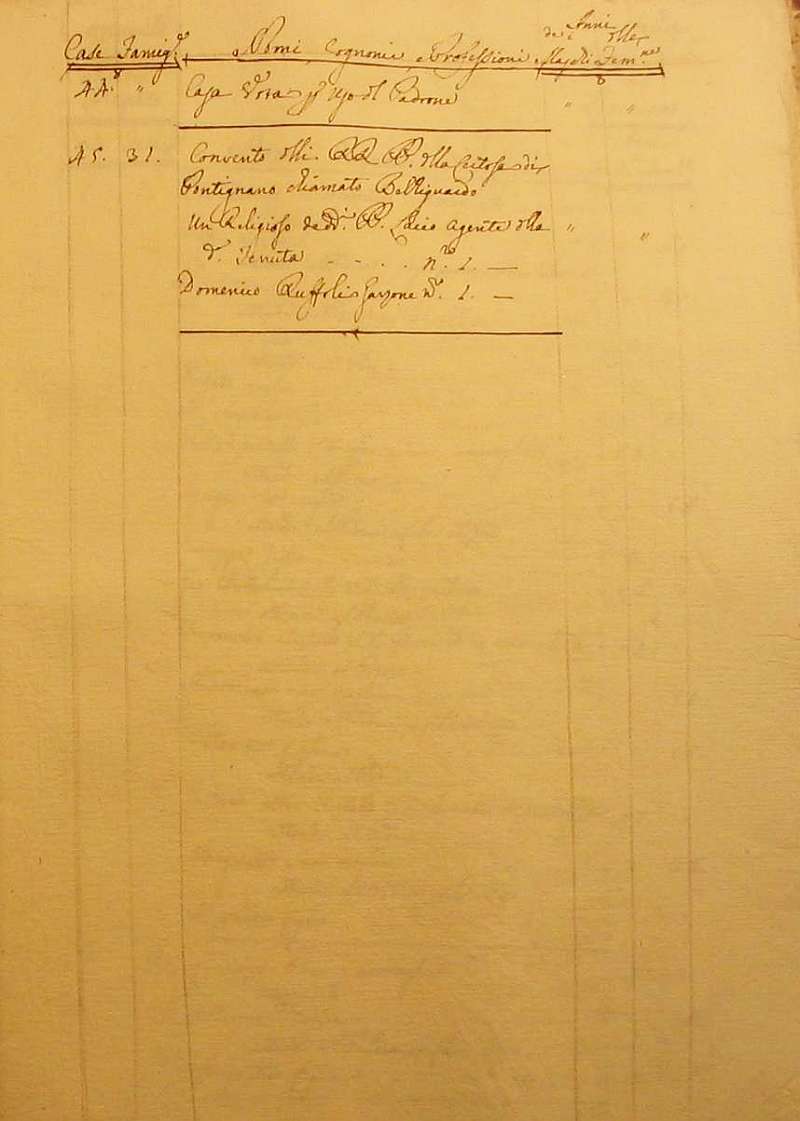 Anni
Case Famigl:e Nomi, Cognomi e Professioni de Maschi delle Femne
44. " Casa per uso del Padrone " "
45. 31. Convento delli RR PP. della Certosa di
Pontignano chiamato Belriguardo
Un Religioso de dd:i PP. Agente della " "
d:a Tenuta - - . . n:o 1. —
Domenico Ruffoli Garzone N:o 1. —